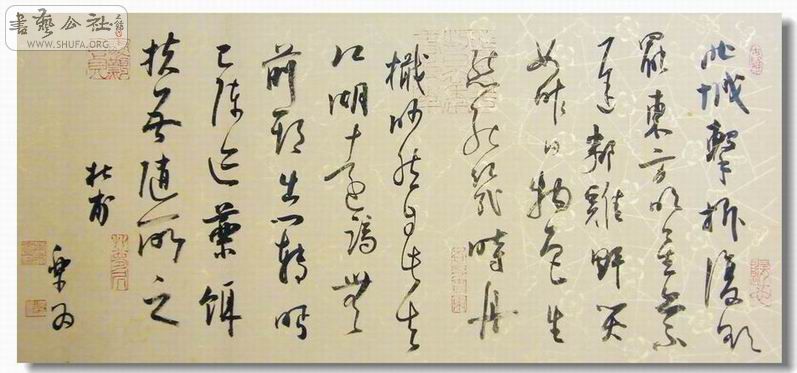 書藝公社
WWW.SHUFA.ORG
北城擊柝復欲
罷東方明星亦
不遲鄰雞野哭
如昨日物色生
態能幾時舟
楫眇然自此去
江湖遠適無
前期出門轉眄
已陳迹藥餌
扶吾隨所之
杜甫